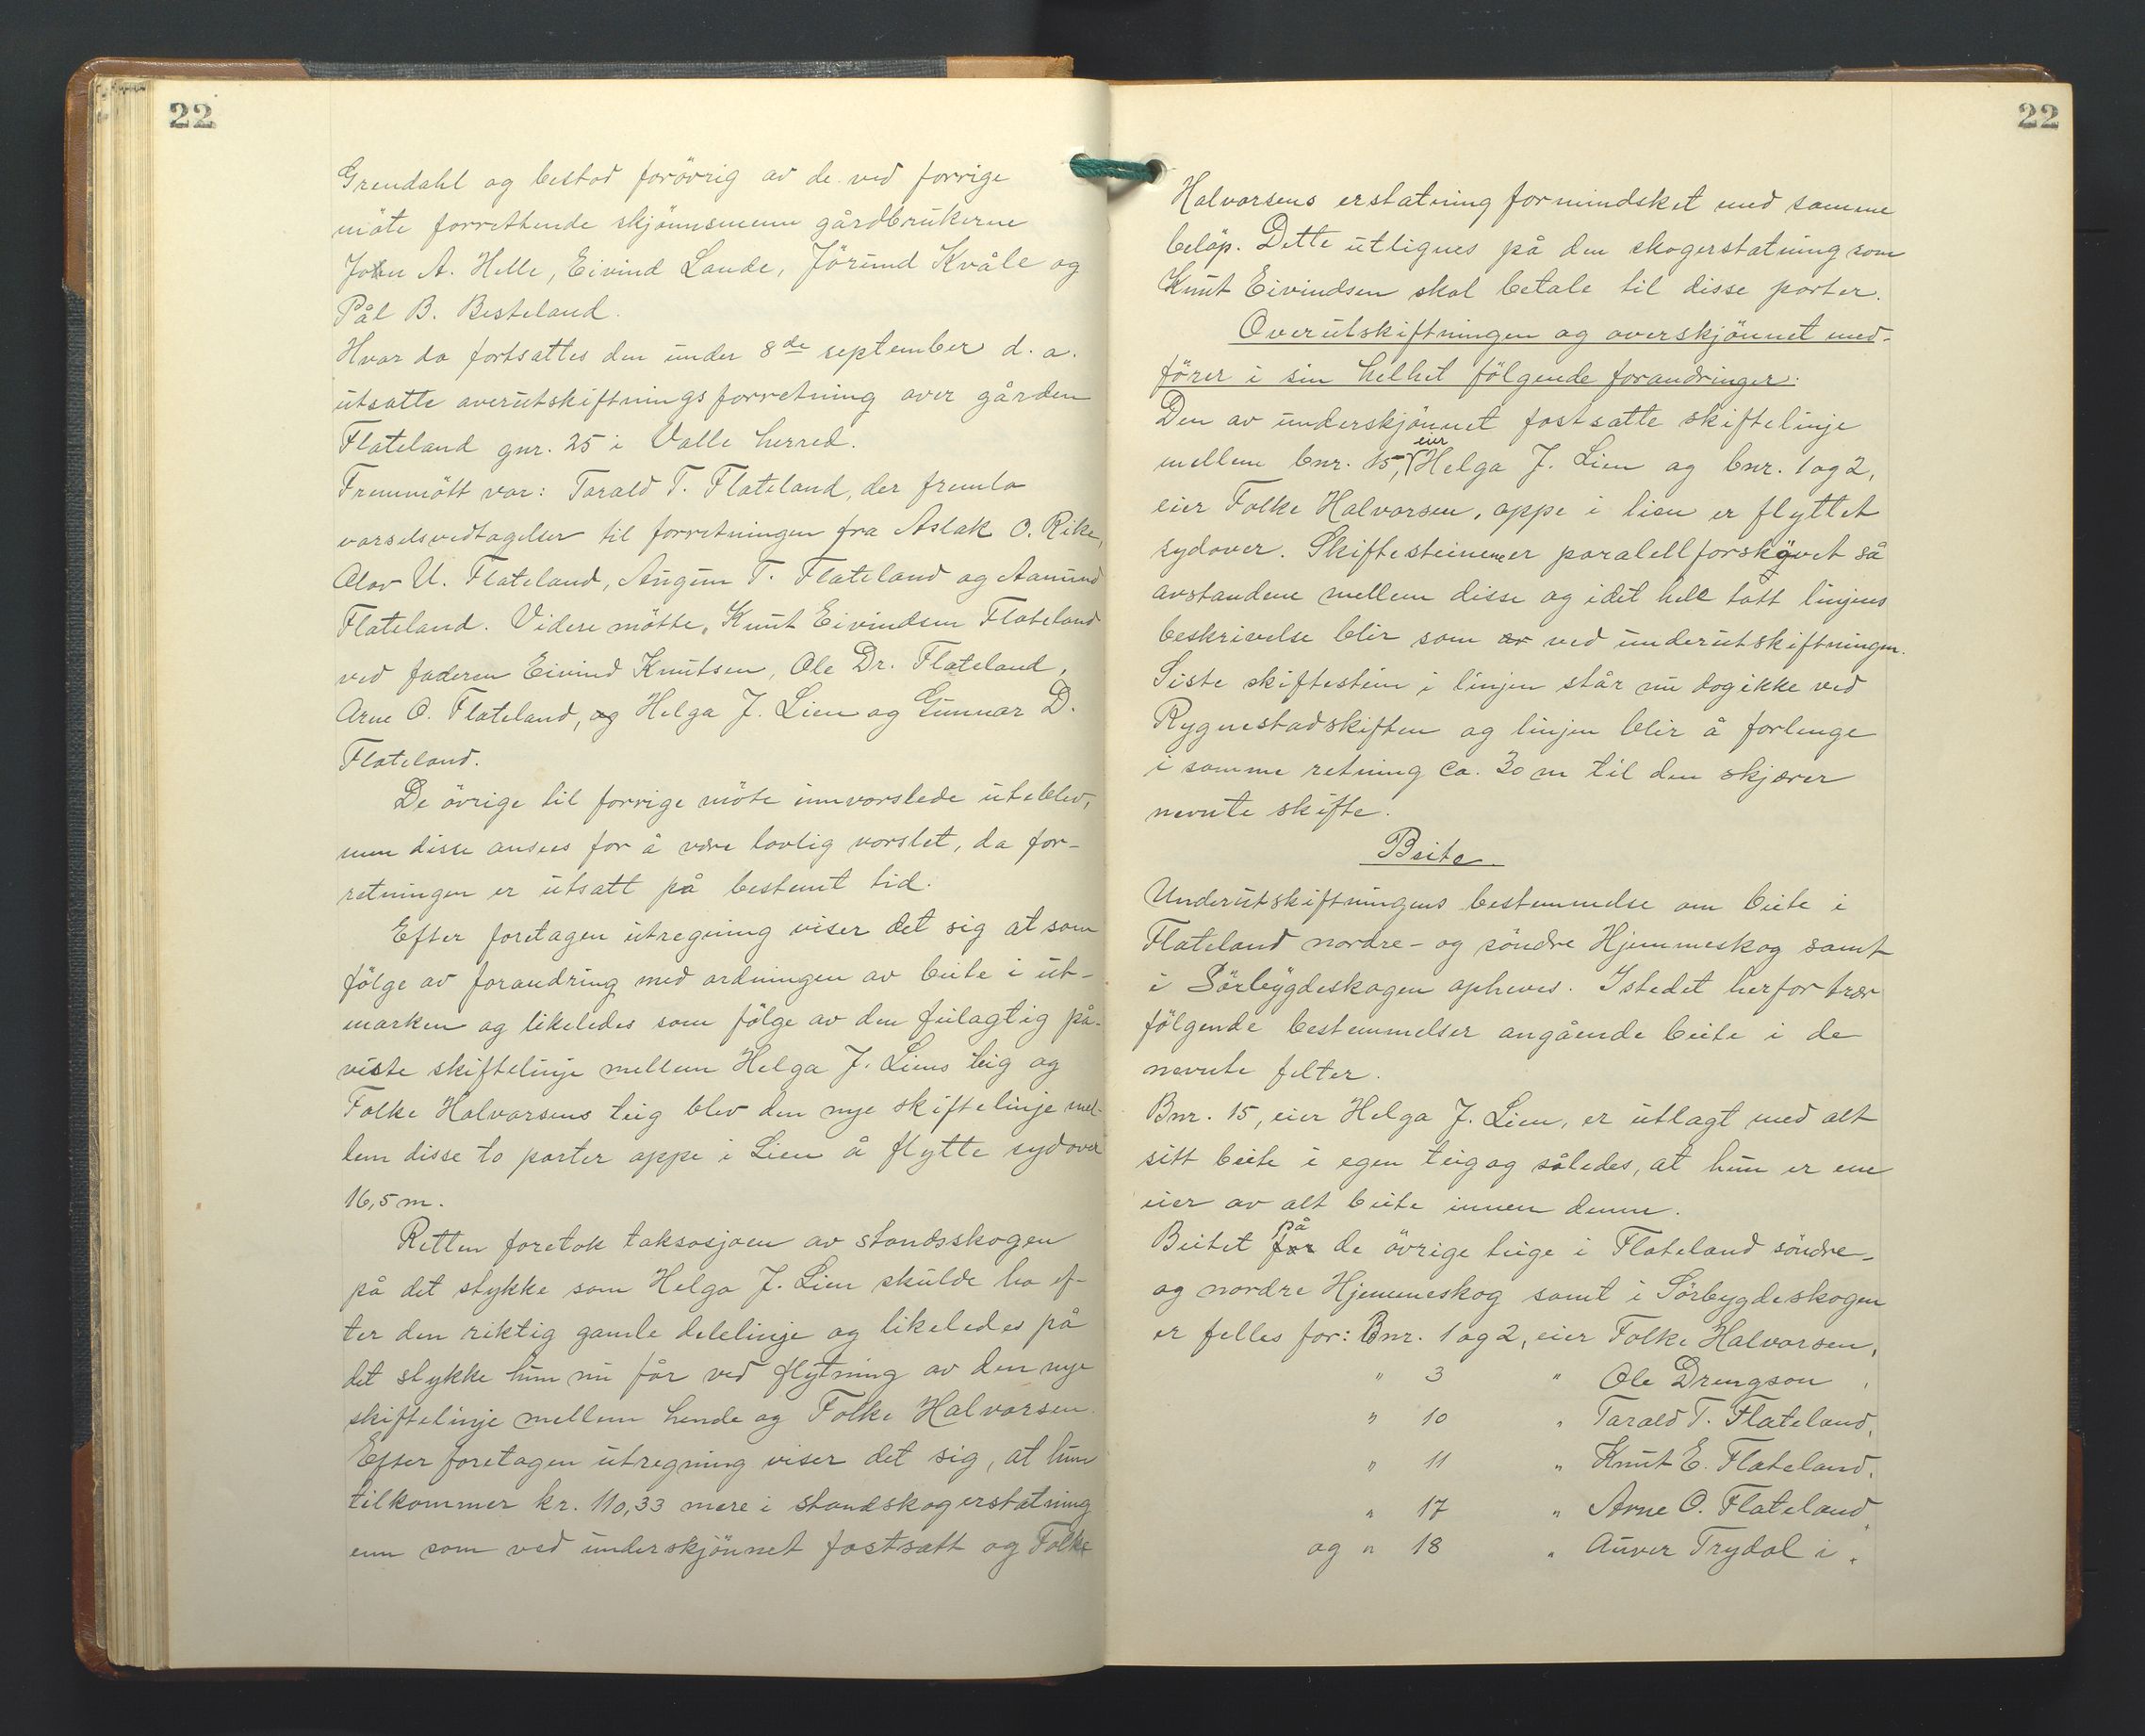 22
Grendahl og bestod forövrig av de ved forrige
möte forrettende skjönnsmenn gårdbrukerne
John A. Helle, Eivind Lande, Jörund Kvåle og
Pål B. Besteland.
Hvor da fortsattes den under 8de september d. a.
utsatte overutskiftningsforretning over gården
Flateland gnr. 25 i Valle herred.
Fremmött var: Tarald T. Flateland, der fremla
varselsvedtagelser til forretningen fra Aslak O. Rike,
Olav U. Flateland, Augun T. Flateland og Aanund
Flateland. Videre mötte, Knut Eivindsen Flateland
ved faderen Eivind Knutsen, Ole Dr. Flateland,
Arne O. Flateland, og Helga J. Lien og Gunnar D.
Flateland.
De övrige til forrige möte innvarslede uteblev,
men disse ansees for å være lovlig varslet, da for-
retningen er utsatt på bestemt tid.
Efter foretagen utregning viser det sig at som
fölge av forandring med ordningen av beite i ut-
marken og likeledes som fölge av den feilagtig på-
viste skiftelinje mellem Helga J. Liens teig og
Folke Halvorsens teig blev den nye skiftelinje mel-
lem disse to parter oppe i Lien å flytte sydover
16,5 m.
Retten foretok taksasjoen av standsskogen
på det stykke som Helga J. Lien skulde ha ef-
ter den riktig gamle delelinje og likeledes på
det stykke hun nu får ved flytning av den nye
skiftelinje mellem hende og Folke Halvorsen.
Efter foretagen utregning viser det sig, at hun
tilkommer kr. 110,33 mere i standskogerstatning
enn som ved underskjönnet fastsatt og Folke
22
Halvorsens erstatning formindsket med samme
belöp. Dette utlignes på den skogerstatning som
Knut Eivindsen skal betale til disse parter.
Overutskiftningen og overskjönnet med-
förer i sin helhet fölgende forandringer:
Den av underskjönnet fastsatte skiftelinje
mellem bnr. 15, eier Helga J. Lien og bnr. 1 og 2,
eier Folke Halvorsen, oppe i lien er flyttet
sydover. Skiftesteinene er paralellforskövet så
avstandene mellem disse og i det hele tatt linjens
beskrivelse blir som av ved underutskiftningen.
Siste skiftestein i linjen står nu dog ikke ved
Rygnestadskiften og linjen blir å forlenge
i samme retning ca. 30 m til den skjærer
nevnte skifte.
Beite
Underutskiftningens bestemmelse om beite i
Flateland nordre- og söndre Hjemmeskog samt
i Sörbygdeskogen opheves. Istedet herfor trær
fölgende bestemmelser angående beite i de
nevnte felter.
Bnr. 15, eier Helga J. Lien, er utlagt med alt
sitt beite i egen teig og således, at hun er ene
eier av alt beite innen denne.
Beitet for på de övrige teige i Flateland söndre-
og nordre Hjemmeskog samt i Sörbygdeskogen
er felles for: Bnr. 1 og 2, eier Folke Halvorsen,
" 3 " Ole Drengson ,
" 10 " Tarald T. Flateland,
" 11 " Knut E. Flateland,
" 17 " Arne O. Flateland,
og " 18 " Auver Trydal i ,